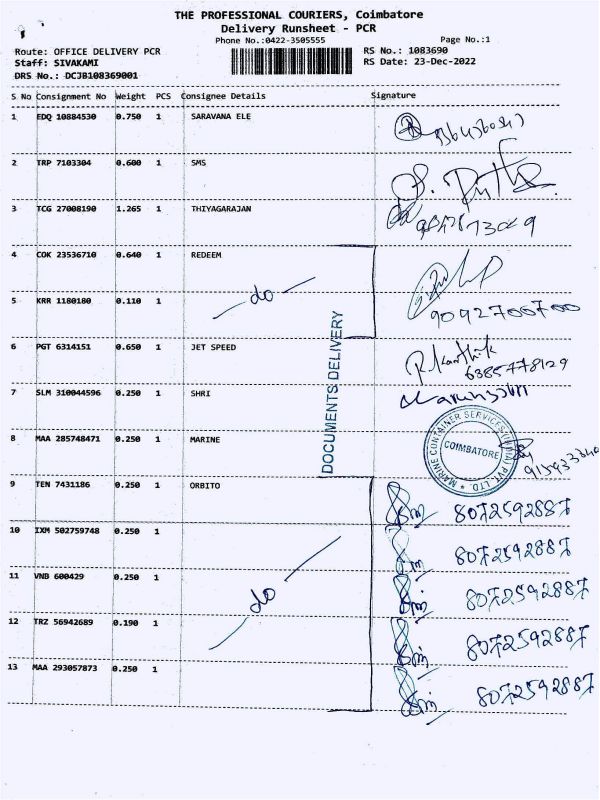 THE PROFESSIONAL COURIERS, Coimbatore
Delivery Runsheet - PCR
Phone No.:0422-3505555 Page No.:1
Route: OFFICE DELIVERY PCR RS No.: 1083690
Staff: SIVAKAMI RS Date: 23-Dec-2022
DRS No.: DCJB108369001
S No Consignment No Weight PCS Consignee Details Signature
1 EDQ 10884530 0.750 1 SARAVANA ELE
2 TRP 7103304 0.600 1 SMS
3 TCG 27008190 1.265 1 THIYAGARAJAN
4 COK 23536710 0.640 1 REDEEM
do
5 KRR 1180180 0.110 1 9092700700
6 PGT 6314151 0.650 1 JET SPEED
6385778129
7 SLM 310044596 0.250 1 SHRI
DOCUMENTS DELIVERY
8 MAA 285748471 0.250 1 MARINE
MARINE CONTAINER SERVICES (INDIA) PVT. LTD.
COIMBATORE
9 TEN 7431186 0.250 1 ORBITO
8072592887
10 IXM 502759748 0.250 1
8072592887
11 VNB 600429 0.250 1
do 8072592887
12 TRZ 56942689 0.190 1
8072592887
13 MAA 293057873 0.250 1
8072592887